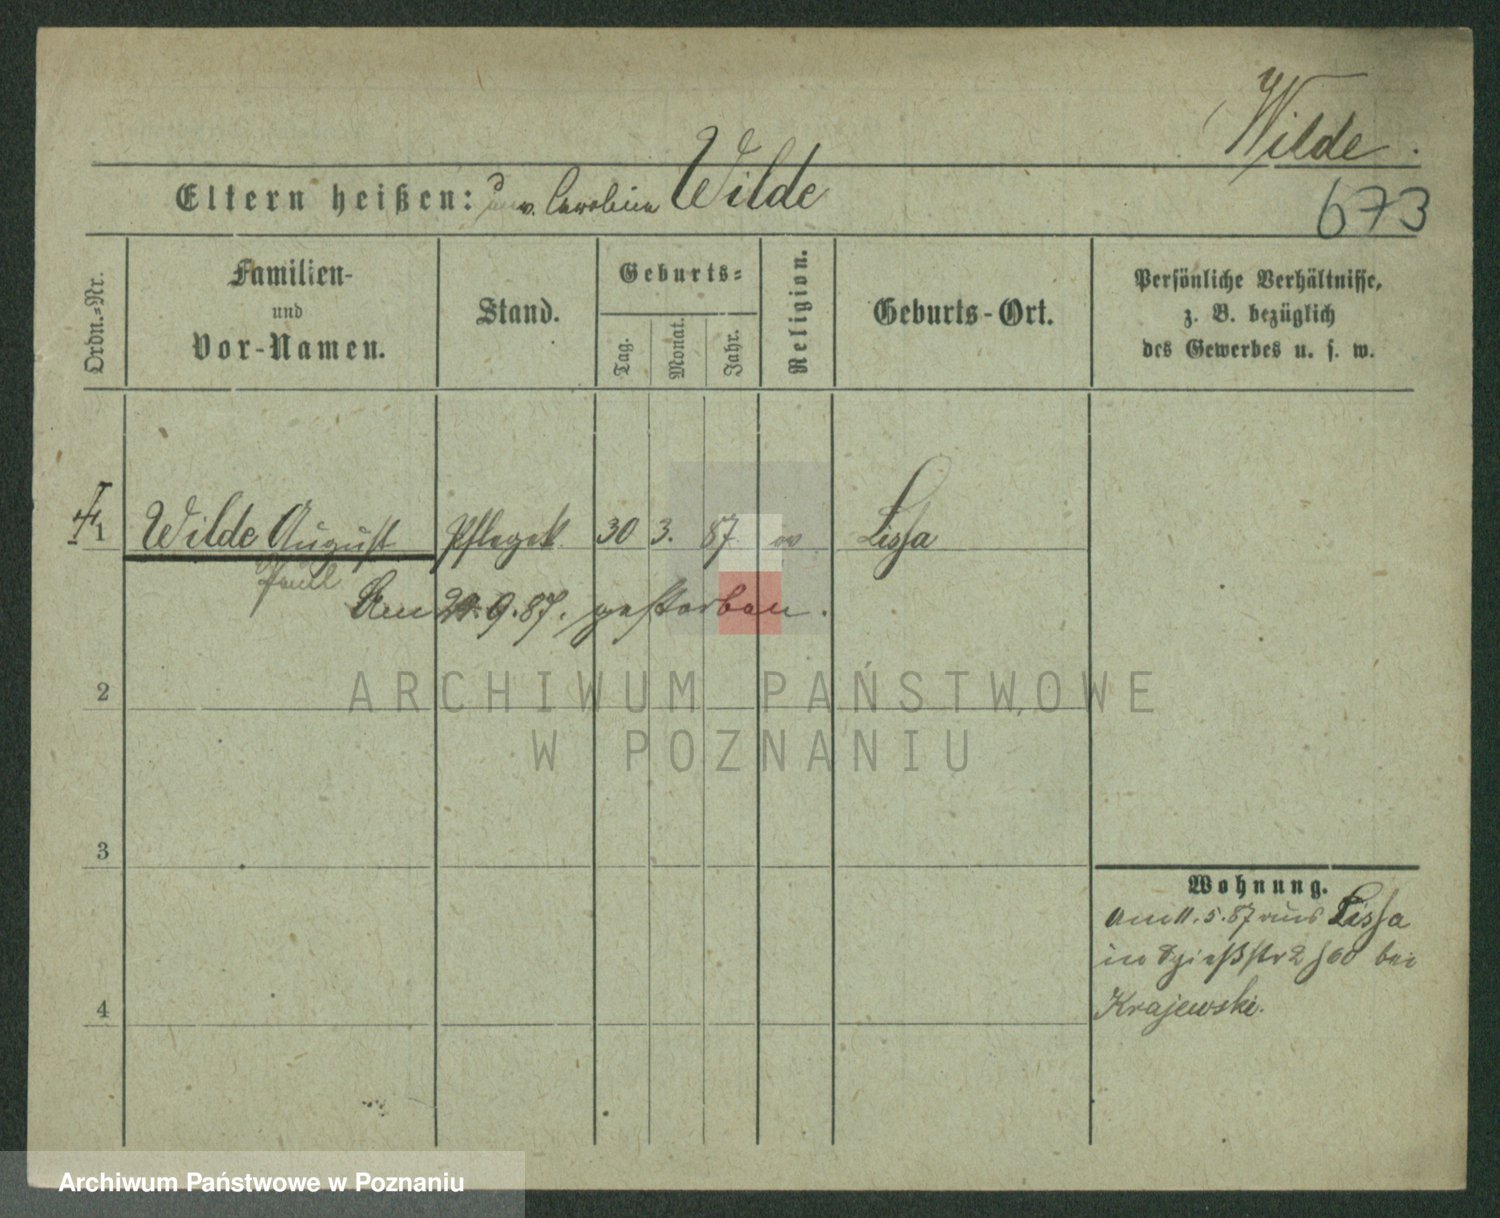 Wilde.
Eltern heißen: unv. Carolina Wilde
673
Ordn.-Nr.
Familien-
und
Vor-Namen.
Stand.
Geburts-
Tag.
Monat.
Jahr.
Religion.
Geburts-Ort.
Persönliche Verhältnisse,
z. B. bezüglich
des Gewerbes u. s. w.
1 Wilde August Pflegek 30 3. 87 Lissa
Paul
Am 9.87. gestorben.
2
3
4
Wohnung.
am 11.5.87 aus Lissa
in bei
Krajewski.
ARCHIWUM PAŃSTWOWE
W POZNANIU
Archiwum Państwowe w Poznaniu